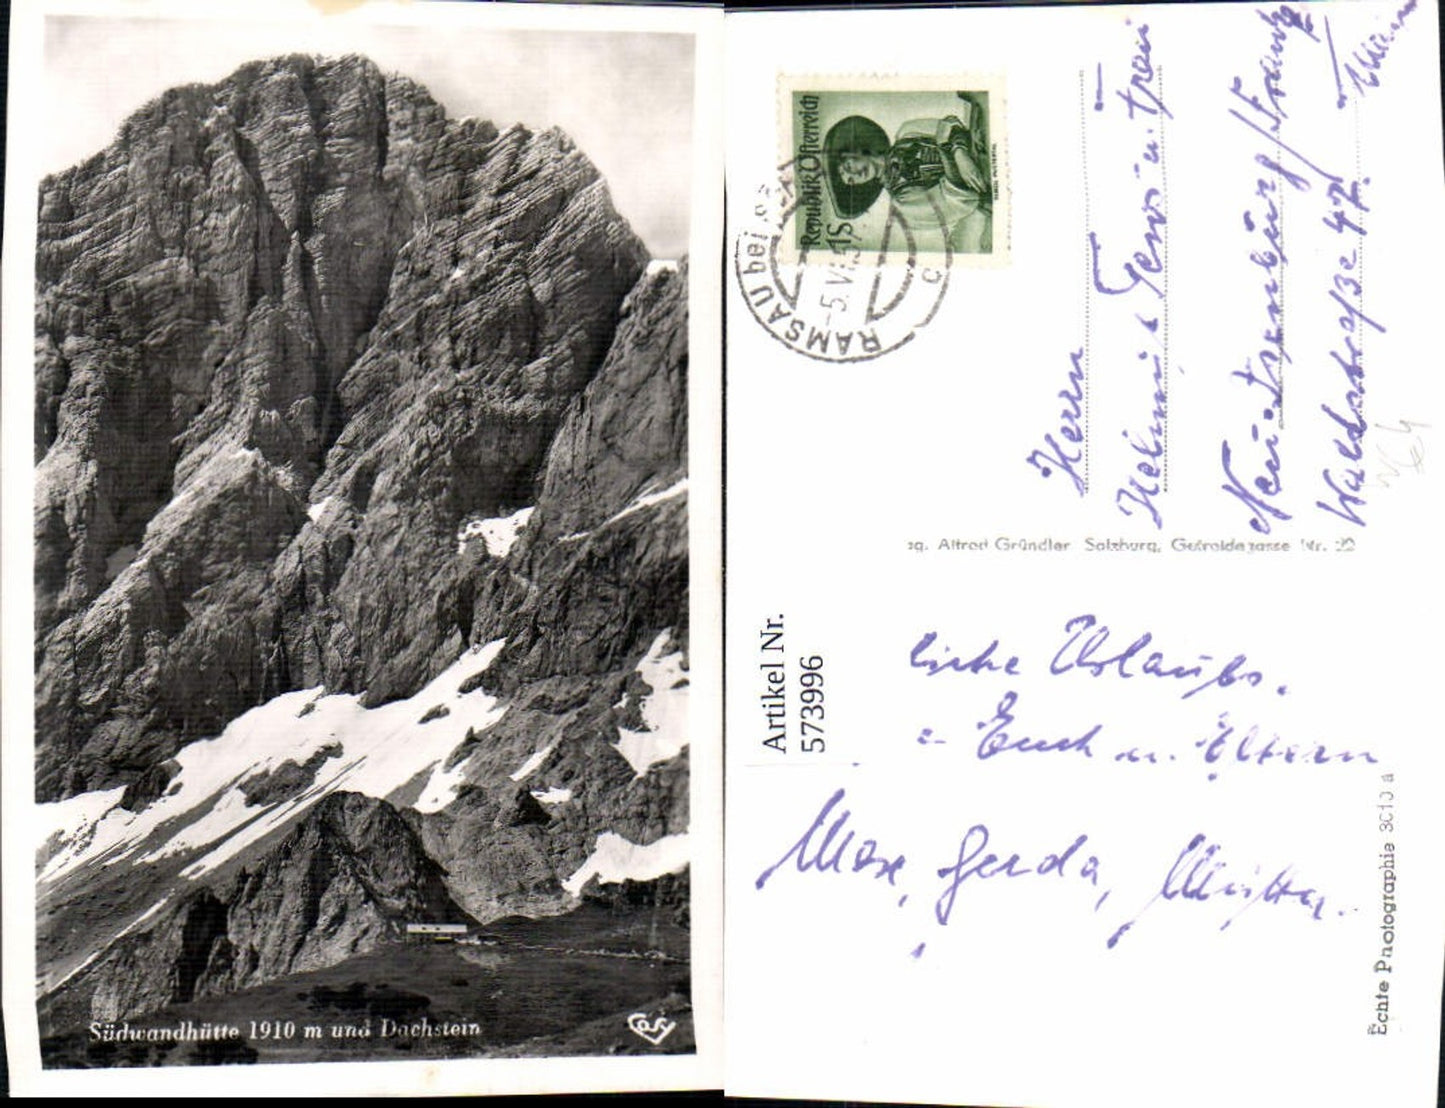 Südwandhütte 1910 m und Dachstein
Cosy
Republik Österreich
1S
RAMSAU bei
-5.VI.5
Herrn
Helmut u. Frau
Neu-Isenburg / Frankf
Waldstraße 47
Main
Alfred Gründler Salzburg, Getreidegasse Nr. 22
Artikel Nr.
573996
Urlaubs.
Euch u. Eltern
Max, Gerda, Mutter.
Echte Photographie 3010 a